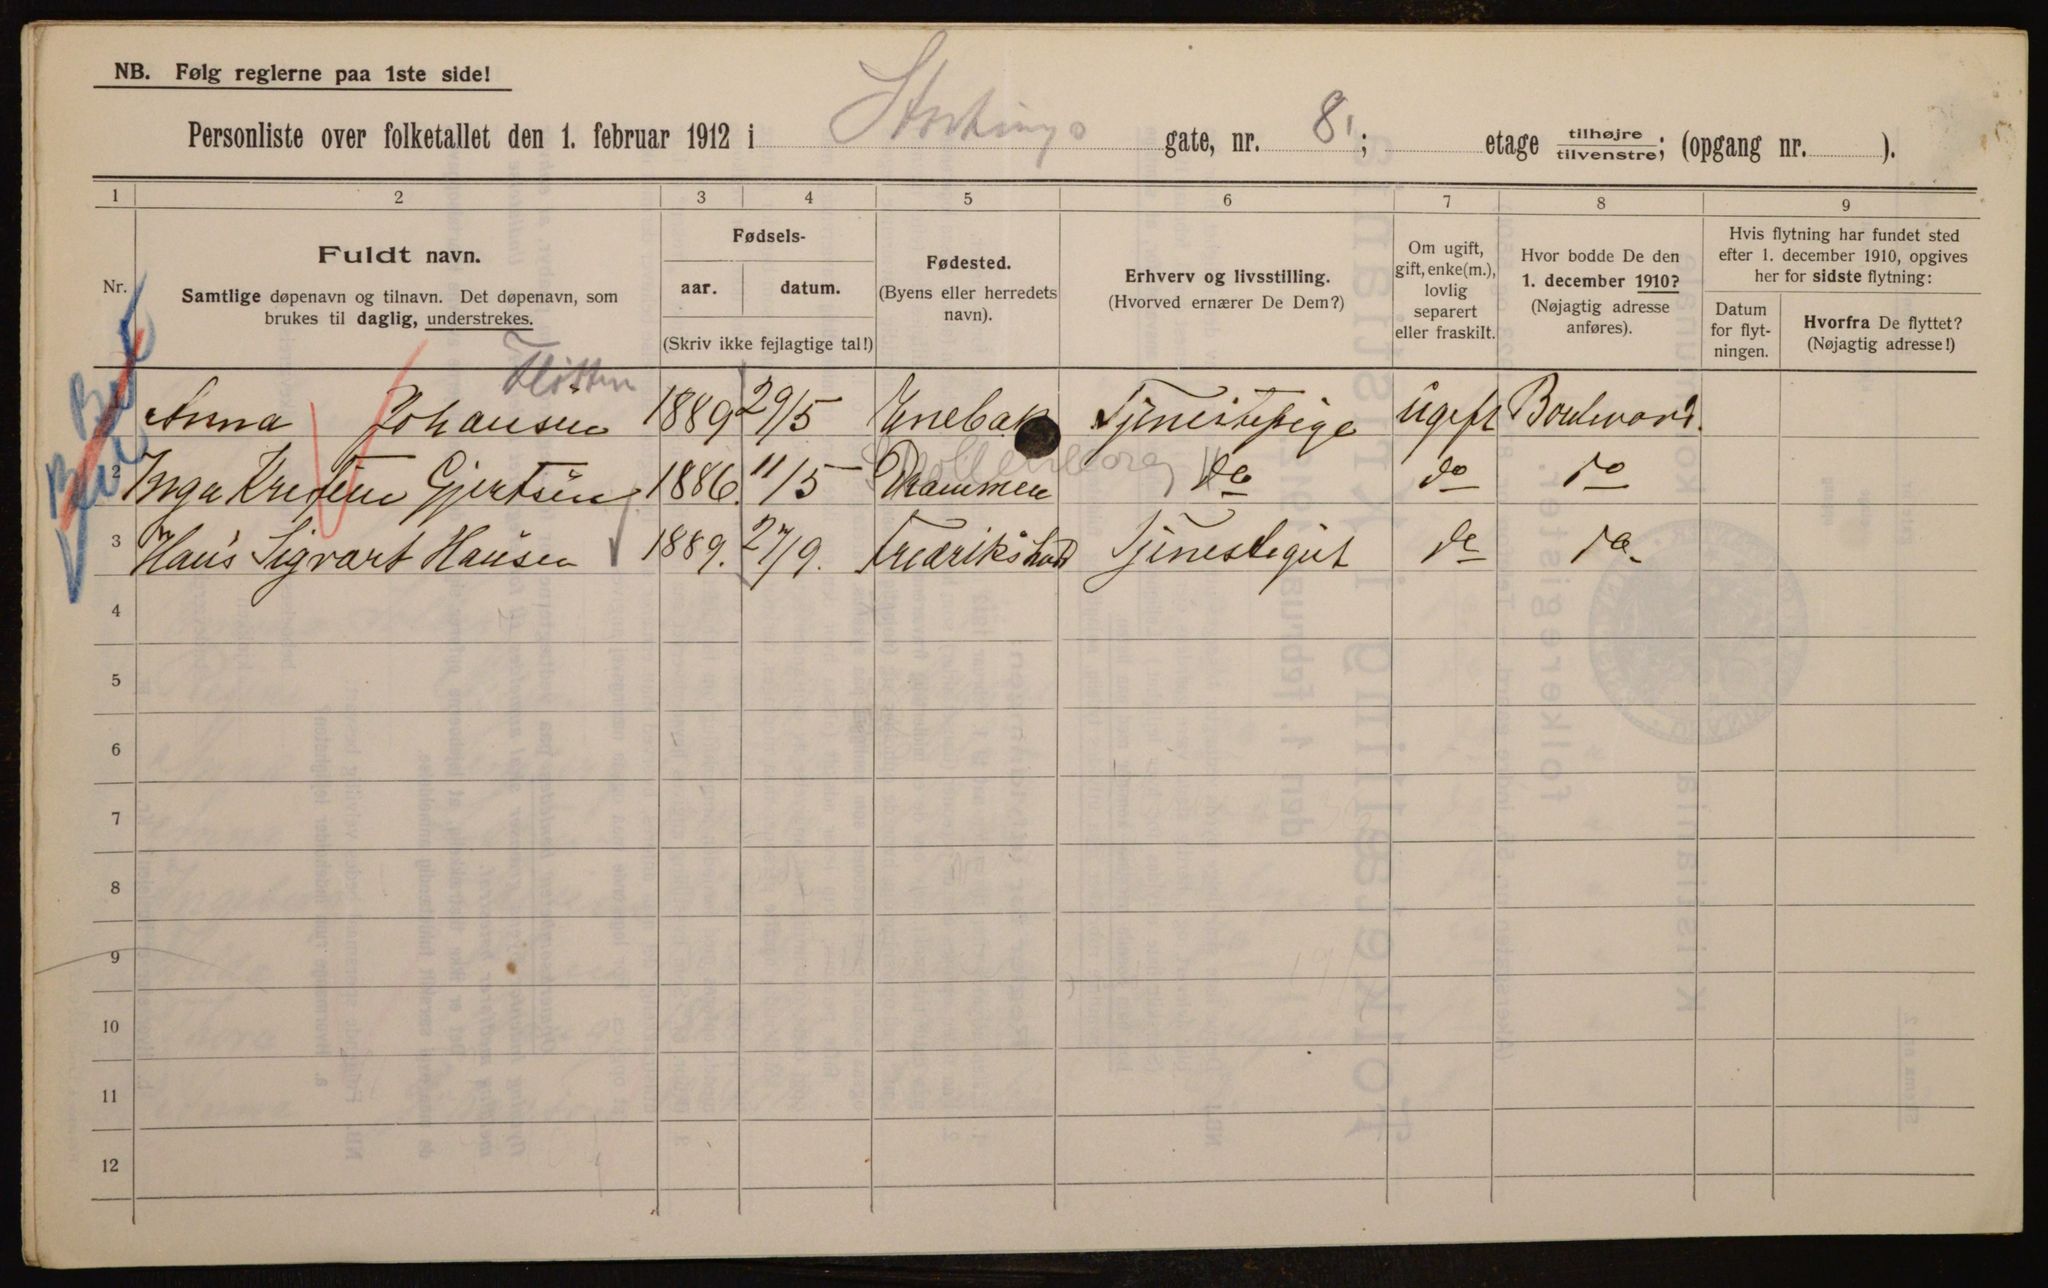 NB. Følg reglerne paa 1ste side!
Personliste over folketallet den 1. februar 1912 i Stortings gate, nr. 8, ; etage tilhøjre/tilvenstre; (opgang nr. ).
1 2 3 4 5 6 7 8 9
Nr.
Fuldt navn.
Samtlige døpenavn og tilnavn. Det døpenavn, som
brukes til daglig, understrekes.
Fødsels-
aar. datum.
(Skriv ikke fejlagtige tal!)
Fødested.
(Byens eller herredets
navn).
Erhverv og livsstilling.
(Hvorved ernærer De Dem?)
Om ugift,
gift, enke(m.),
lovlig
separert
eller fraskilt.
Hvor bodde De den
1. december 1910?
(Nøjagtig adresse
anføres).
Hvis flytning har fundet sted
efter 1. december 1910, opgives
her for sidste flytning:
Datum
for flyt-
ningen.
Hvorfra De flyttet?
(Nøjagtig adresse!)
Anna Johansen 1889 29/5 Enebak Tjenestepige ugift Boulevard.
2 Inga Kristine Gjertsen 1886. 11/5 Drammen do do do
3 Hans Sigvart Hansen 1889. 27/9. Fredrikshald Tjenestegut do do
4
5
6
7
8
9
10
11
12